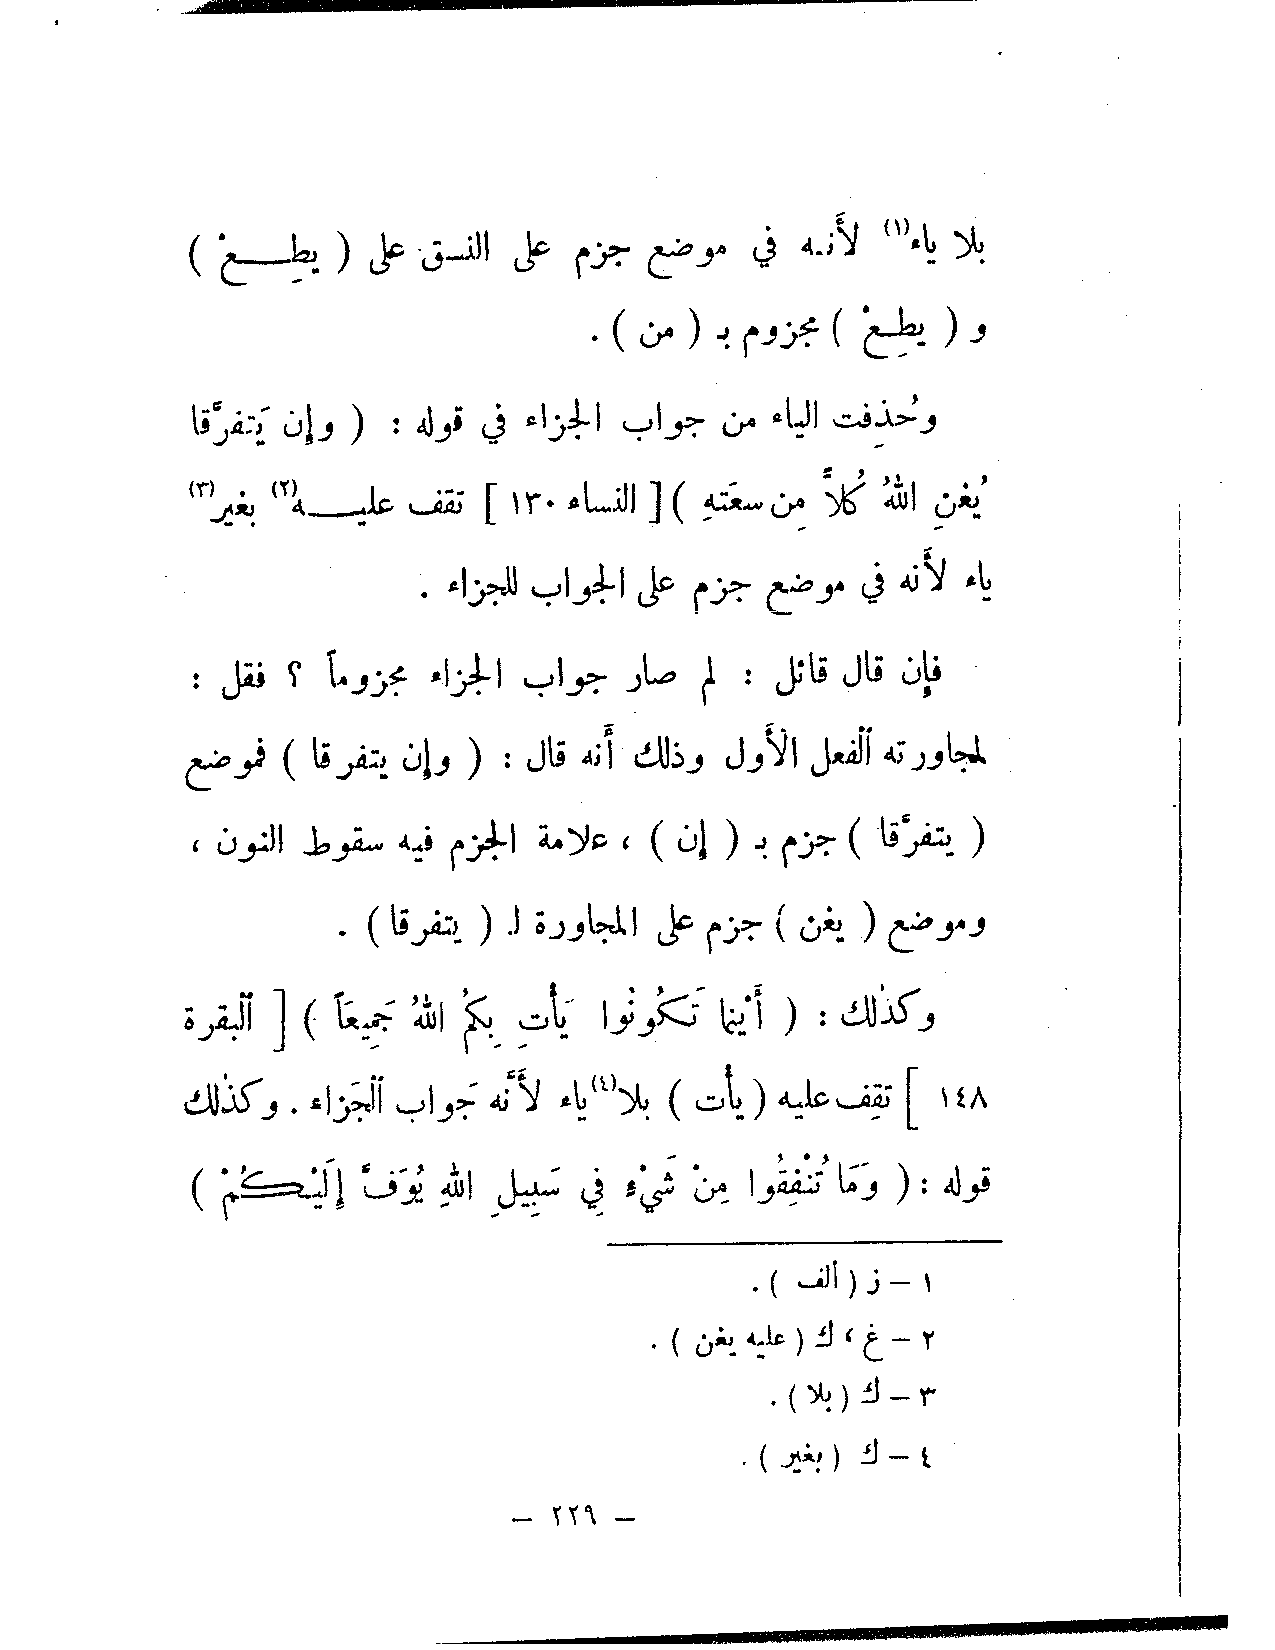 بلا ياء(١) لأنـه في موضع جزم على النسـق على ( يطِـــعْ )
و ( يطِـعْ ) مجزوم بـ ( من ) .
وحُذِفت الياء من جواب الجزاء في قوله : ( وإن يَتفرَّقا
يُغنِ اللهُ كُلاًّ مِن سعَتهِ ) [ النساء ١٣٠ ] تقف عليـــه(٢) بغير(٣)
ياء لأنه في موضع جزم على الجواب للجزاء .
فإن قال قائل : لم صار جواب الجزاء مجزوماً ؟ فقل :
لمجاورته الفعل الأول وذلك أنه قال : ( وإن يتفرقا ) فموضع
( يتفرَّقا ) جزم بـ ( إن ) ، علامة الجزم فيه سقوط النون ،
وموضع ( يغن ) جزم على المجاورة لـ ( يتفرقا ) .
وكذلك : ( أَيْنما تَكُونُوا يَأتِ بِكُم اللهُ جَمِيعَاً ) [ البقرة
١٤٨ ] تقِف عليه ( يأت ) بلا(٤) ياء لأنَّه جَواب الجَزاء . وكذلك
قوله : ( وَمَا تُنْفِقُوا مِنْ شَيْءٍ فِي سَبِيلِ اللهِ يُوَفَّ إِلَيْكُمْ )
١ – ز ( ألف ) .
٢ – غ ، ك ( عليه يغن ) .
٣ – ك ( بلا ) .
٤ – ك ( بغير ) .
– ٢٢٩ –